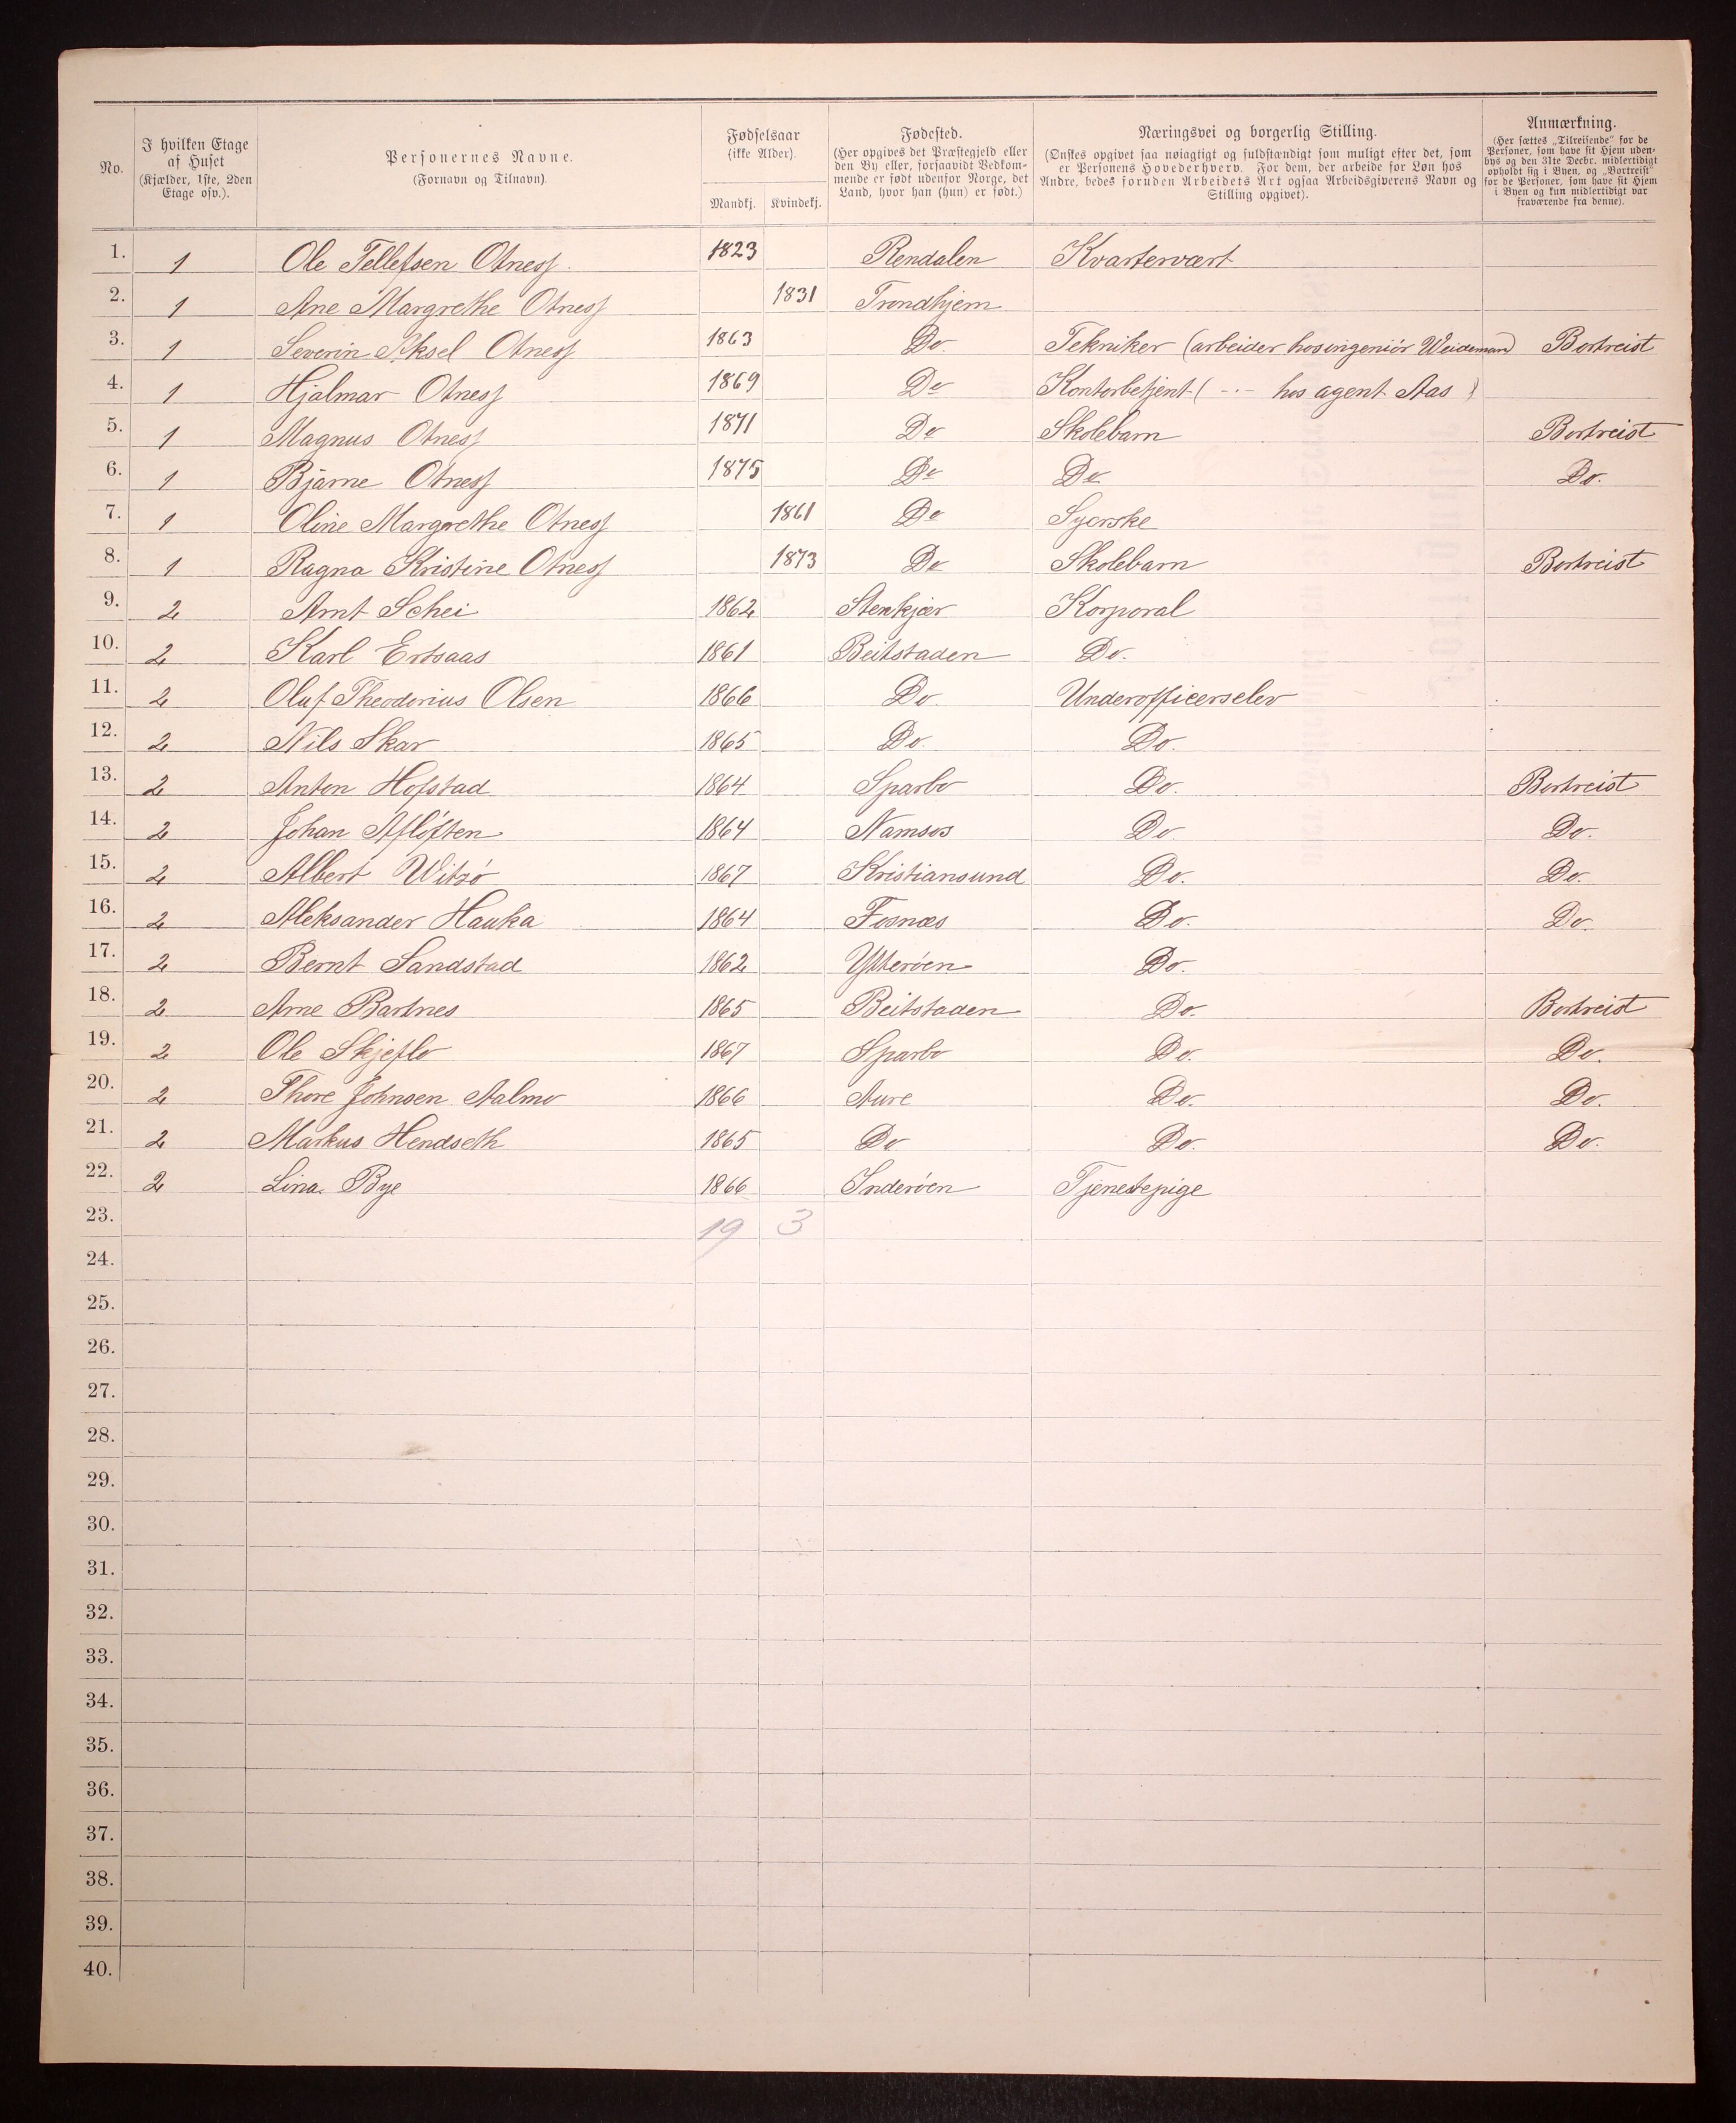 No.
I hvilken Etage
af Huset
(Kjælder, 1ste, 2den
Etage osv.).
Personernes Navne.
(Fornavn og Tilnavn)
Fødselsaar
(ikke Alder)
Mandkj. Kvindekj.
Fødested.
(Her opgives det Præstegjeld eller
den By eller, forsaavidt Vedkom-
mende er født udenfor Norge, det
Land, hvor han (hun) er født.)
Næringsvei og borgerlig Stilling.
(Ønskes opgivet saa nøiagtigt og fuldstændigt som muligt efter det, som
er Personens Hovederhverv. For dem, der arbeide for Løn hos
Andre, bedes foruden Arbeidets Art ogsaa Arbeidsgiverens Navn og
Stilling opgivet).
Anmærkning.
(Her sættes „Tilreisende" for de
Personer, som have sit Hjem uden-
bys og den 31te Decbr. midlertidigt
opholdt sig i Byen, og „Bortreist"
for de Personer, som have sit Hjem
i Byen og kun midlertidigt var
fraværende fra denne).
1. 1 Ole Tellefsen Otness 1823 Rendalen Kvartervært
2. 1 Ane Margrethe Otness 1831 Trondhjem
3. 1 Severin Aksel Otness 1863 Do. Tekniker (arbeider hos ingeniör Weideman) Bortreist
4. 1 Hjalmar Otness 1869 Do Kontorbetjent ( -·- hos agent Aas )
5. 1 Magnus Otness 1871 Do Skolebarn Bortreist
6. 1 Bjarne Otness 1875 Do Do. Do.
7. 1 Oline Margrethe Otness 1861 Do Syerske
8. 1 Ragna Kristine Otness 1873 Do Skolebarn Bortreist
9. 2 Arnt Schei 1862 Stenkjær Korporal
10. 2 Karl Ertsaas 1861 Beitstaden Do.
11. 2 Oluf Theodorius Olsen 1866 Do. Underofficerselev
12. 2 Nils Skar 1865 Do. Do.
13. 2 Anton Hofstad 1864 Sparbo Do. Bortreist
14. 2 Johan Aflöften 1864 Namsos Do Do.
15. 2 Albert Witsö 1867 Kristiansund Do. Do.
16. 2 Aleksander Hauka 1864 Fosnæs Do. Do.
17. 2 Bernt Sandstad 1862 Ytteröen Do.
18. 2 Arne Bartnes 1865 Beitstaden Do. Bortreist
19. 2 Ole Skjeflo 1867 Sparbo Do. Do.
20. 2 Thore Johnsen Aalmo 1866 Aure Do. Do.
21. 2 Markus Hendseth 1865 Do Do. Do.
22. 2 Lina Bye 1866 Inderöen Tjenestepige
23. 19 3
24.
25.
26.
27.
28.
29.
30.
31.
32.
33.
34.
35.
36.
37.
38.
39.
40.